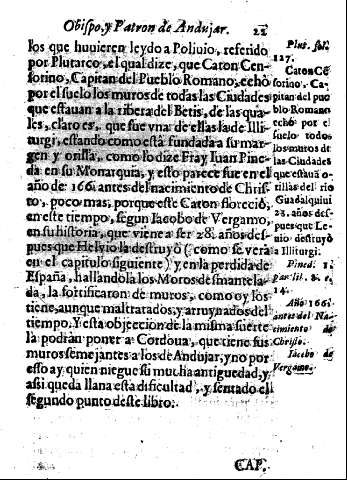 Obispo, y Patron de Andujar. 22
los que huvieren leydo a Polivio, referido
por Plutarco, el qual dize, que Caton Cen-
sorino, Capitan del Pueblo Romano, echò
por el suelo los muros de todas las Ciudades
que estauan a la ribera del Betis, de las qua-
les, claro es, que fue vna de ellas la de Illi-
turgi, estando como està fundada a su mar-
gen y orilla, como lo dize Fray Iuan Pine-
da en su Monarquia, y esto parece fue en el
año de 166. antes del nacimiento de Chris-
to, poco mas, porque este Caton floreciò
en este tiempo, segun Iacobo de Vergamo,
en su historia, que viene a ser 28. años des-
pues que Helvio la destruyò (como se verà
en el capitulo siguiente) y en la perdida de
España, hallandola los Moros desmantela-
da, la fortificaron de muros, como oy los
tiene, aunque maltratados, y arruynados del
tiempo. Y esta objeccion de la misma suerte
la podràn poner a Cordoua, que tiene sus
muros semejantes a los de Andujar, y no por
esso ay quien niegue su mucha antiguedad, y
assi queda llana esta dificultad, y sentado el
segundo punto deste libro.
Plut. fol.
127.
Caton Cē
sorino, Ca-
pitan del pue
blo Romano,
echò por el
suelo todos
los muros de
las Ciudades
que estauã a
orillas del rio
Guadalquiui
23. años des-
pues que Le-
uio destruyò
a Illiturgi.
Pined. 1.
par. lib. 8. c.
14.
Año 166.
antes del Na-
cimiento de
Christo.
Iacobo de
Vergamo.
CAP.